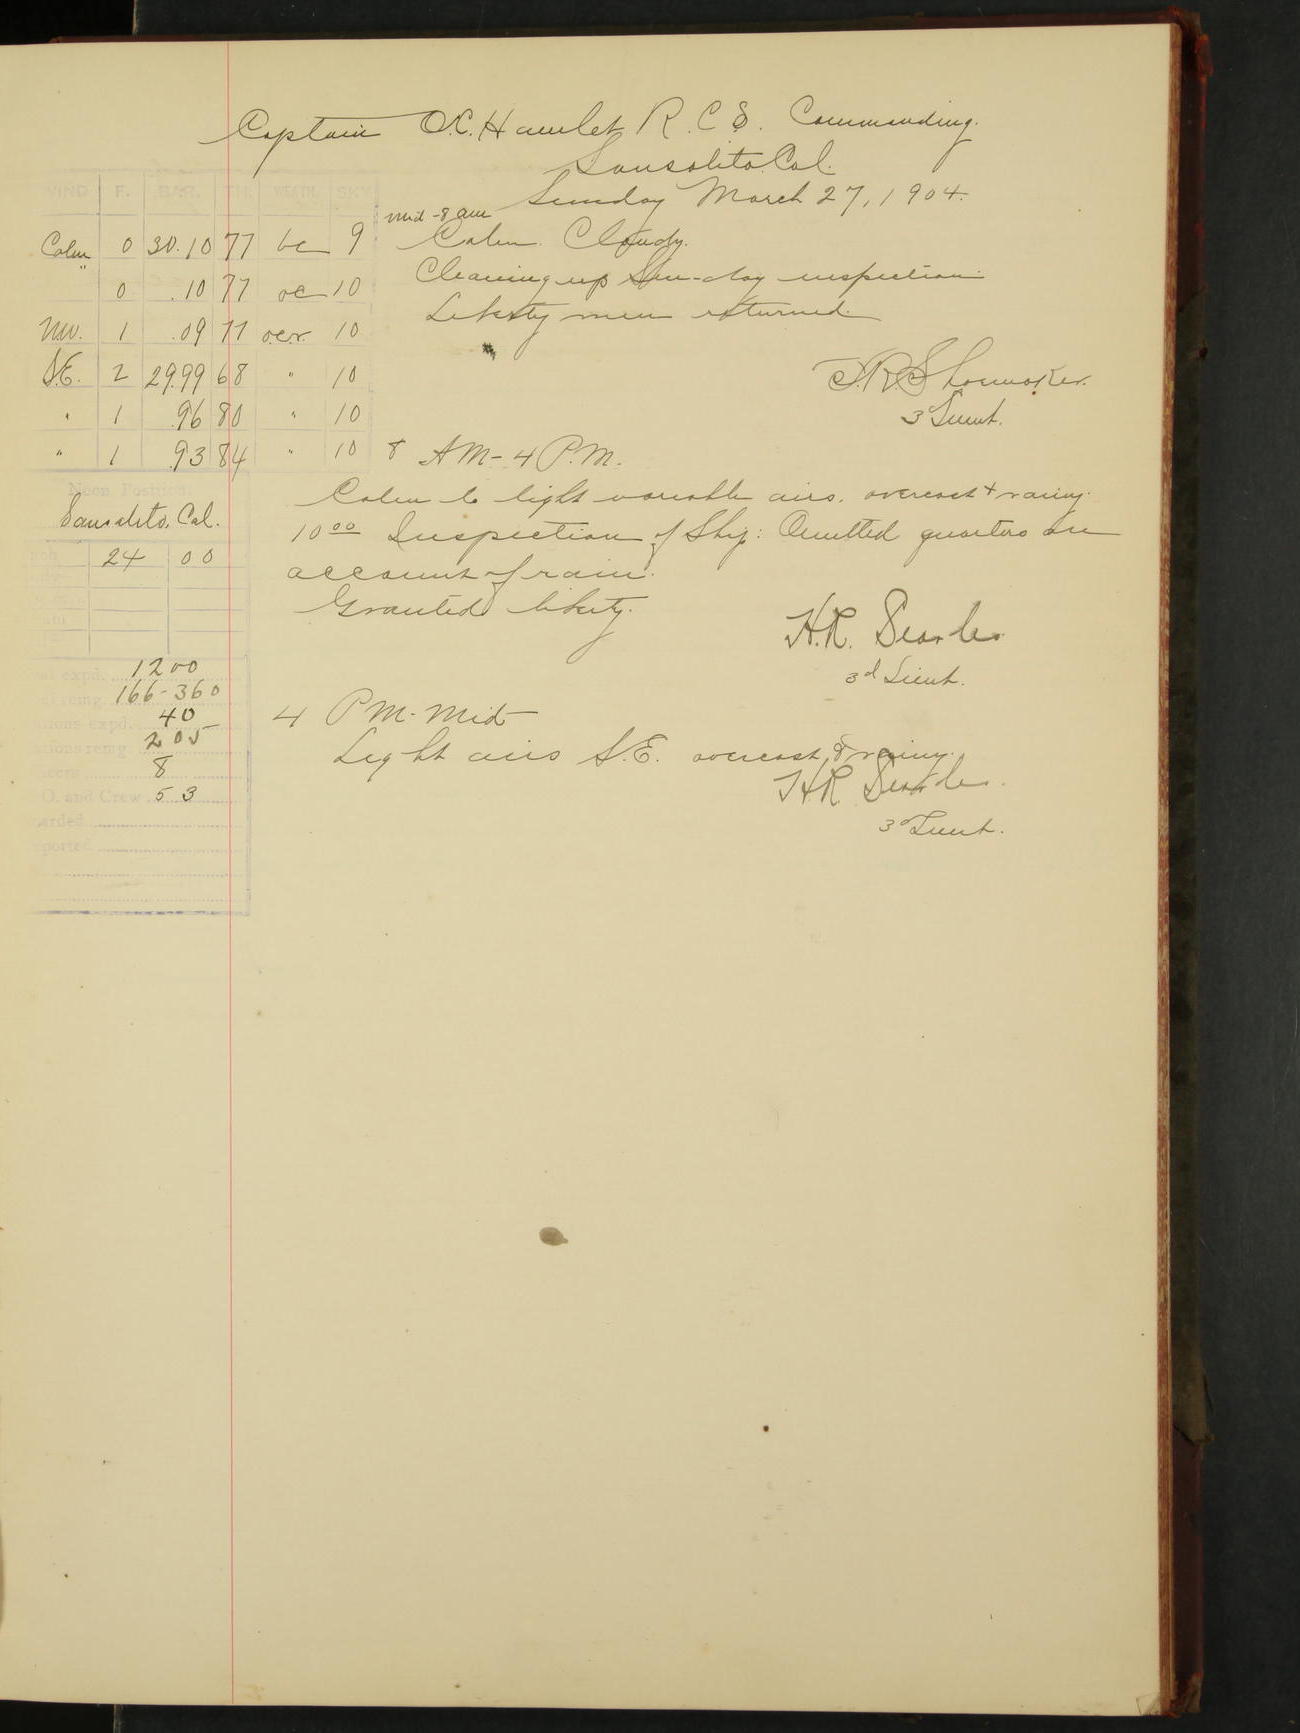 Captain O.C. Hamlet R.C.S. Commanding.
Sausalito Cal.
Sunday March 27, 1904.
WIND F. BAR. TH. WEATH. SKY
Calm 0 30.10 77 bc 9
" 0 .10 77 oc 10
NW. 1 .09 77 ocr. 10
S.E. 2 29.99 68 " 10
" 1 .96 80 " 10
" 1 .93 84 " 10
Noon Position.
Sausalito, Cal.
24 00
expd. 1200
remg. 166-360
expd. 40
remg. 205
8
O. and Crew 53
mid - 8 am
Calm. Cloudy.
Cleaning up Sun-day inspection.
Liberty men returned.
F.R. Shoemaker.
3d Lieut.
8 AM - 4 P.M.
Calm to light variable airs. overcast + rainy.
10 00 Inspection of Ship: Omitted quarters on
account of rain.
Granted liberty.
H.R. Searles
3d Lieut.
4 PM - Mid
Light airs S.E. overcast & rainy.
H.R. Searles.
3d Lieut.